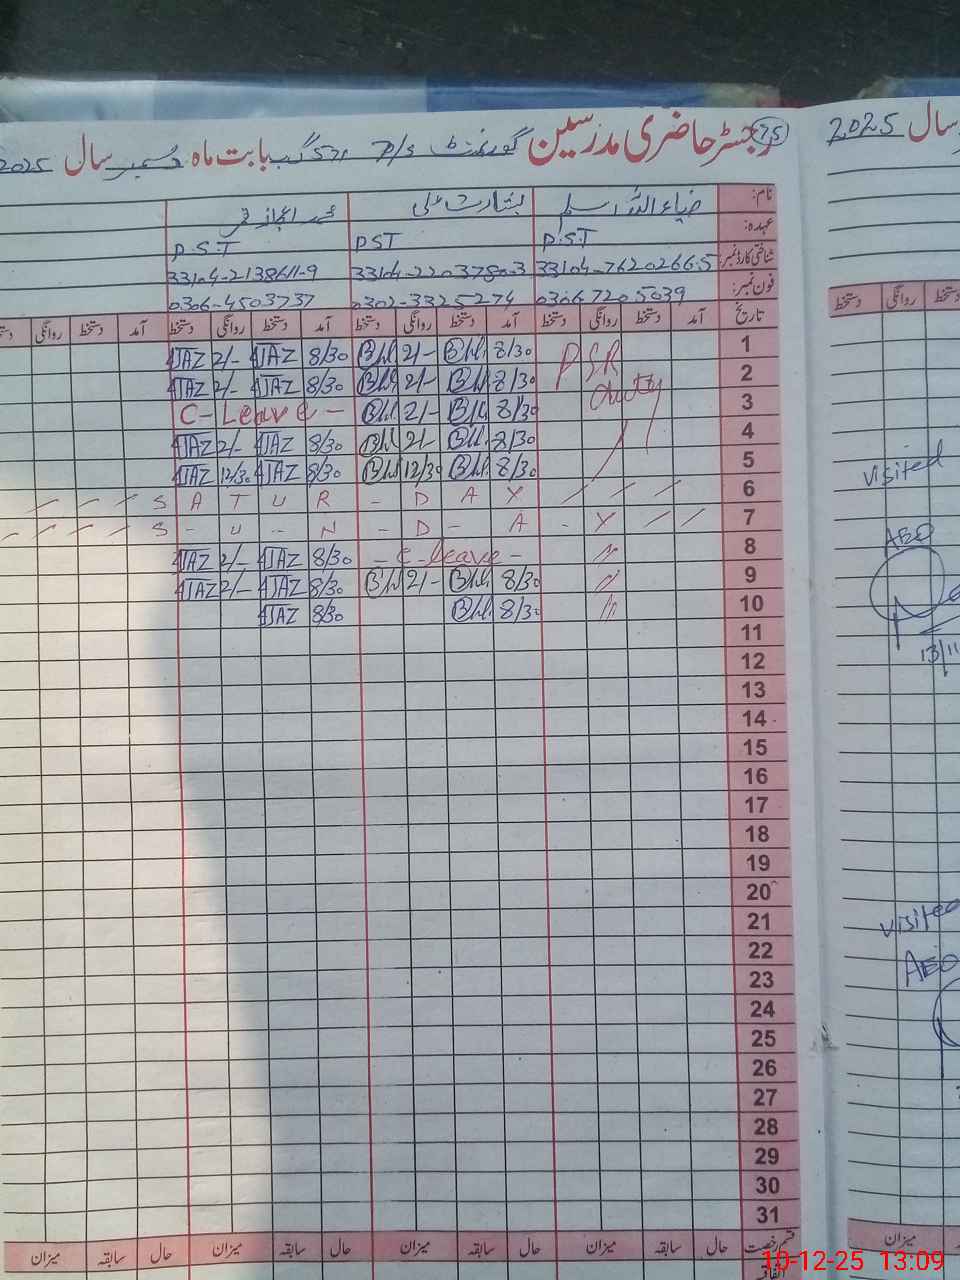 رجسٹر حاضری مدرسین گورنمنٹ P/S 571 گ ب بابت ماہ دسمبر سال 2025
75
نام: ضیاء اللہ اسلم بشارت علی محمد اعجاز
عہدہ: P.S.T PST P.S.T
شناختی کارڈ نمبر: 33104-7620266-5 33104-2203780-3 33104-2138611-9
فون نمبر: 0306 7205039 0302-3325274 0306-4503737
تاریخ آمد دستخط روانگی دستخط آمد دستخط روانگی دستخط آمد دستخط روانگی دستخط آمد دستخط روانگی
1 PSR 8/30 2/- 8/30 IJAZ 2/- IJAZ
2 duty 8/30 2/- 8/30 IJAZ 2/- IJAZ
3 8/30 2/- C-Leave-
4 8/30 2/- 8/30 IJAZ 2/- IJAZ
5 8/30 12/30 8/30 IJAZ 12/30 IJAZ
6 S A T U R - D A Y
7 S - U - N - D - A - Y
8 - C-leave - 8/30 IJAZ 2/- IJAZ
9 8/30 2/- 8/30 IJAZ 2/- IJAZ
10 8/30 8/30 IJAZ
11
12
13
14
15
16
17
18
19
20
21
22
23
24
25
26
27
28
29
30
31
قسم رخصت حال سابقہ میزان حال سابقہ میزان حال سابقہ میزان حال سابقہ میزان
اتفاقیہ
سال 2025
دستخط روانگی دستخط
visited
AEO
13/11
visited
AEO
میزان
10-12-25 13:09